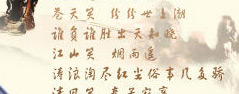 苍天笑 纷纷世上潮
谁负谁胜出天知晓
江山笑 烟雨遥
涛浪淘尽红尘俗事几多骄
清风笑 竟惹寂寥